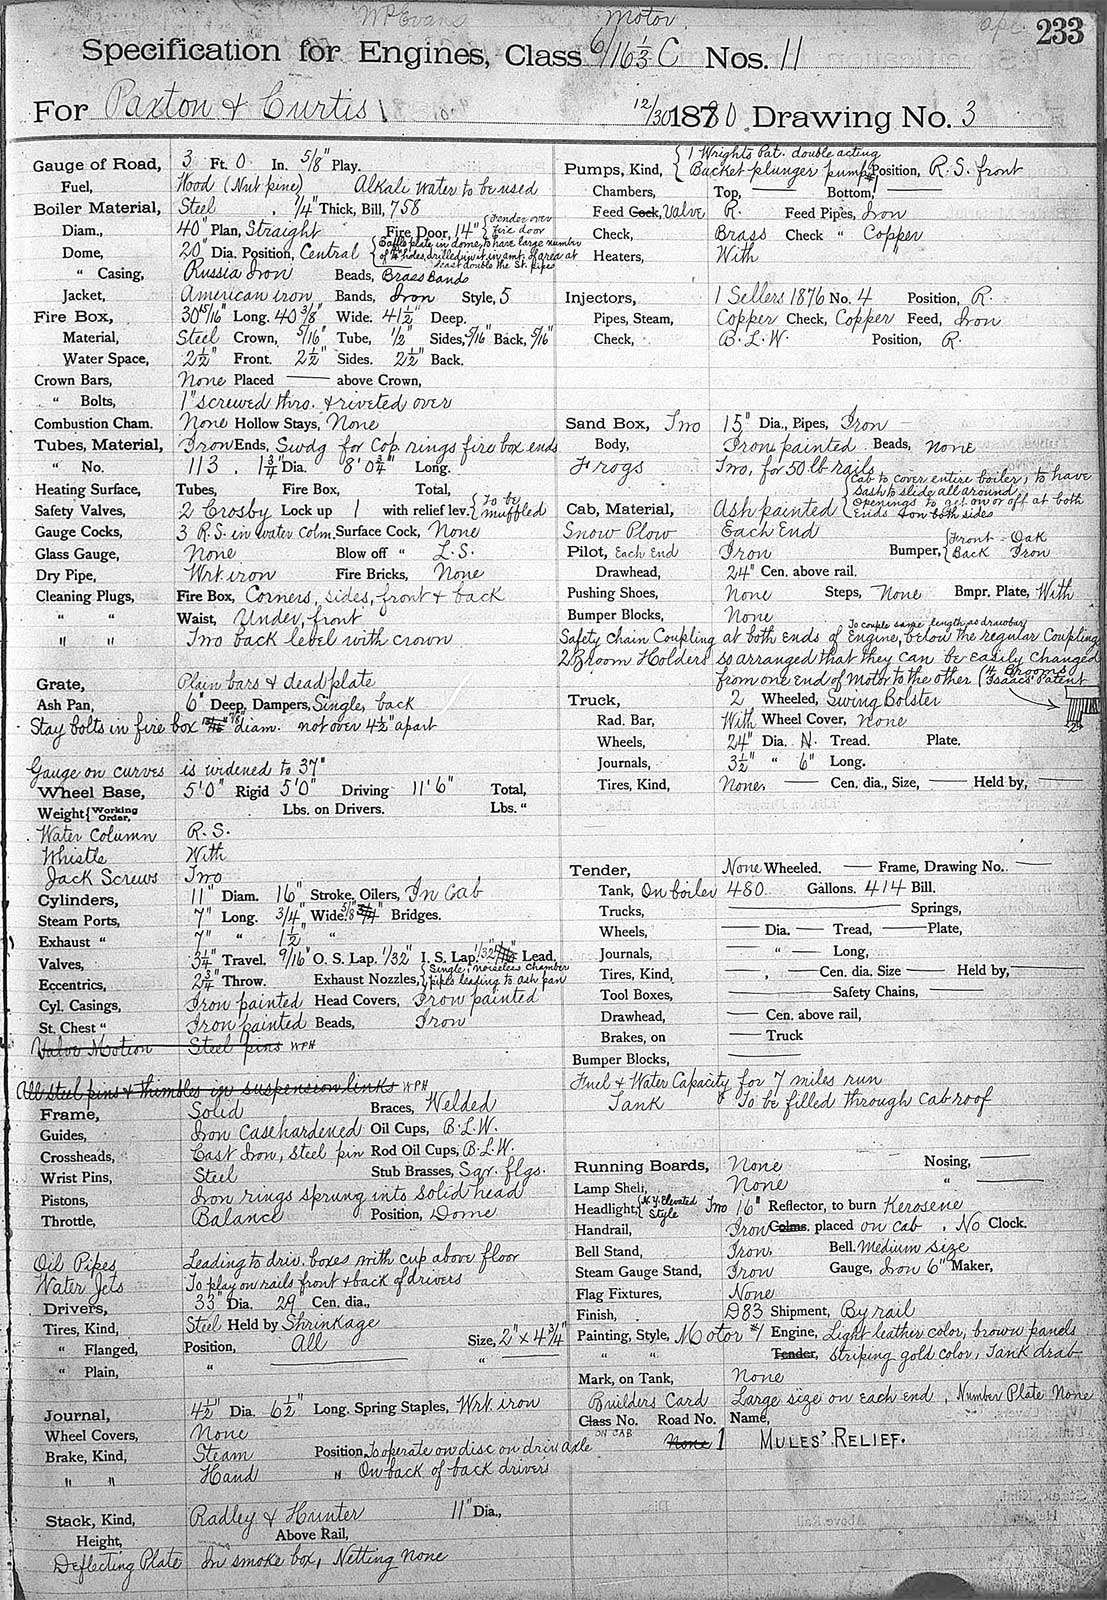 Wm Evans Motor 233
Specification for Engines, Class 6/16 1/3 C Nos. 11
For Paxton & Curtis 12/30 1880 Drawing No. 3
Gauge of Road, 3 Ft. 0 In. 5/8" Play.
Fuel, Wood (Nut pine) Alkali water to be used
Boiler Material, Steel, 1/4" Thick, Bill, 758
Diam., 40" Plan, Straight Fire Door, 14" {Fender over fire door
Dome, 20" Dia. Position, Central {Baffle plate in dome, to have large number of holes, drilled in it in amt. of area at least double the St. pipes
" Casing, Russia Iron Beads, Brass Bands
Jacket, American iron Bands, Iron Style, 5
Fire Box, 30 15/16" Long. 40 3/8" Wide. 41 1/2" Deep.
Material, Steel Crown, 5/16" Tube, 1/2" Sides, 5/16" Back, 5/16"
Water Space, 2 1/2" Front. 2 1/2" Sides. 2 1/2" Back.
Crown Bars, None Placed — above Crown,
" Bolts, 1" screwed thro. & riveted over
Combustion Cham. None Hollow Stays, None
Tubes, Material, Iron Ends, Swdg for Cop. rings fire box ends
" No. 113. 1 3/4" Dia. 8' 0 3/4" Long.
Heating Surface, Tubes, Fire Box, Total,
Safety Valves, 2 Crosby Lock up 1 with relief lev. {To be muffled
Gauge Cocks, 3 R.S. in water Colm. Surface Cock, None
Glass Gauge, None Blow off " L.S.
Dry Pipe, Wrt. iron Fire Bricks, None
Cleaning Plugs, Fire Box, Corners, sides, front & back
" " Waist, Under, front
" " Two back level with crown
Grate, Plain bars & dead plate
Ash Pan, 6" Deep, Dampers, Single, back
Stay bolts in fire box 7/8" diam. not over 4 1/2" apart
Gauge on curves is widened to 37"
Wheel Base, 5'0" Rigid 5'0" Driving 11'6" Total,
Weight {Working Order, Lbs. on Drivers. Lbs. "
Water Column R.S.
Whistle With
Jack Screws Two
Cylinders, 11" Diam. 16" Stroke, Oilers, In Cab
Steam Ports, 7" Long. 3/4" Wide. 5/8" Bridges.
Exhaust " 7" " 1 1/2" "
Valves, 3 1/4" Travel. 9/16" O. S. Lap. 1/32" I. S. Lap. 1/32" Lead,
Eccentrics, 2 3/4" Throw. Exhaust Nozzles, {Single, noiseless chamber pipes leading to ash pan
Cyl. Casings, Iron painted Head Covers, Iron painted
St. Chest " Iron painted Beads, Iron
Valve Motion Steel pins WPH
All steel pins & thimbles in suspension links WPH
Frame, Solid Braces, Welded
Guides, Iron Casehardened Oil Cups, B.L.W.
Crossheads, Cast Iron, Steel pin Rod Oil Cups, B.L.W.
Wrist Pins, Steel Stub Brasses, Sqr. flgs.
Pistons, Iron rings sprung into solid head
Throttle, Balance Position, Dome
Oil Pipes Leading to driv. boxes with cup above floor
Water Jets To play on rails front & back of drivers
Drivers, 33" Dia. 29" Cen. dia.,
Tires, Kind, Steel Held by Shrinkage
" Flanged, Position, All Size, 2" x 4 3/4"
" Plain, " — " —
Journal, 4 1/2" Dia. 6 1/2" Long. Spring Staples, Wrt. iron
Wheel Covers, None
Brake, Kind, Steam Position, To operate on disc on driv axle
" " Hand " On back of back drivers
Stack, Kind, Radley & Hunter 11" Dia.,
Height, Above Rail,
Deflecting Plate In smoke box, Netting none
Pumps, Kind, {1 Wrights Pat. double acting Bucket plunger pump Position, R.S. front
Chambers, Top, — Bottom, —
Feed Cock, Valve R. Feed Pipes, Iron
Check, Brass Check " Copper
Heaters, With
Injectors, 1 Sellers 1876 No. 4 Position, R.
Pipes, Steam, Copper Check, Copper Feed, Iron
Check, B.L.W. Position, R.
Sand Box, Two 15" Dia., Pipes, Iron
Body, Iron painted Beads, None
Frogs Two, for 50 lb rails
Cab, Material, Ash painted {Cab to cover entire boiler, to have sash to slide all around openings to on or off at both ends & on both sides
Snow Plow Each End
Pilot, Each End Iron Bumper, {Front - Oak Back Iron
Drawhead, 24" Cen. above rail.
Pushing Shoes, None Steps, None Bmpr. Plate, With
Bumper Blocks, None
To couple same length as drawbar
Safety chain Coupling at both ends of Engine, below the regular Coupling
2 Broom Holders so arranged that they can be easily changed
from one end of Motor to the other (4 Brooms Isaacs Patent
Truck, 2 Wheeled, Swing Bolster
Rad. Bar, With Wheel Cover, None
Wheels, 24" Dia. N. Tread. Plate.
Journals, 3 1/2" " 6" Long.
Tires, Kind, None, — Cen. dia., Size, — Held by, —
Tender, None Wheeled. — Frame, Drawing No. —
Tank, On boiler 480 Gallons. 414 Bill.
Trucks, — Springs,
Wheels, — Dia. — Tread, — Plate,
Journals, — " — Long,
Tires, Kind, —, — Cen. dia. Size — Held by, —
Tool Boxes, — Safety Chains, —
Drawhead, — Cen. above rail,
Brakes, on — Truck
Bumper Blocks, —
Fuel & Water Capacity for 7 miles run
Tank To be filled through cab roof
Running Boards, None Nosing, —
Lamp Shelf, None " —
Headlight, {N.Y. Elevated Style Two 16" Reflector, to burn Kerosene
Handrail, Iron Colms. placed on cab, No Clock.
Bell Stand, Iron, Bell. Medium size
Steam Gauge Stand, Iron Gauge, Iron 6" Maker,
Flag Fixtures, None
Finish, D83 Shipment, By rail
Painting, Style, Motor #1 Engine, Light leather color, brown panels
" " Tender, striping gold color, Tank drab
Mark, on Tank, None
Builders Card Large size on each end, Number Plate None
Class No. Road No. Name,
ON CAB None 1 MULES' RELIEF.